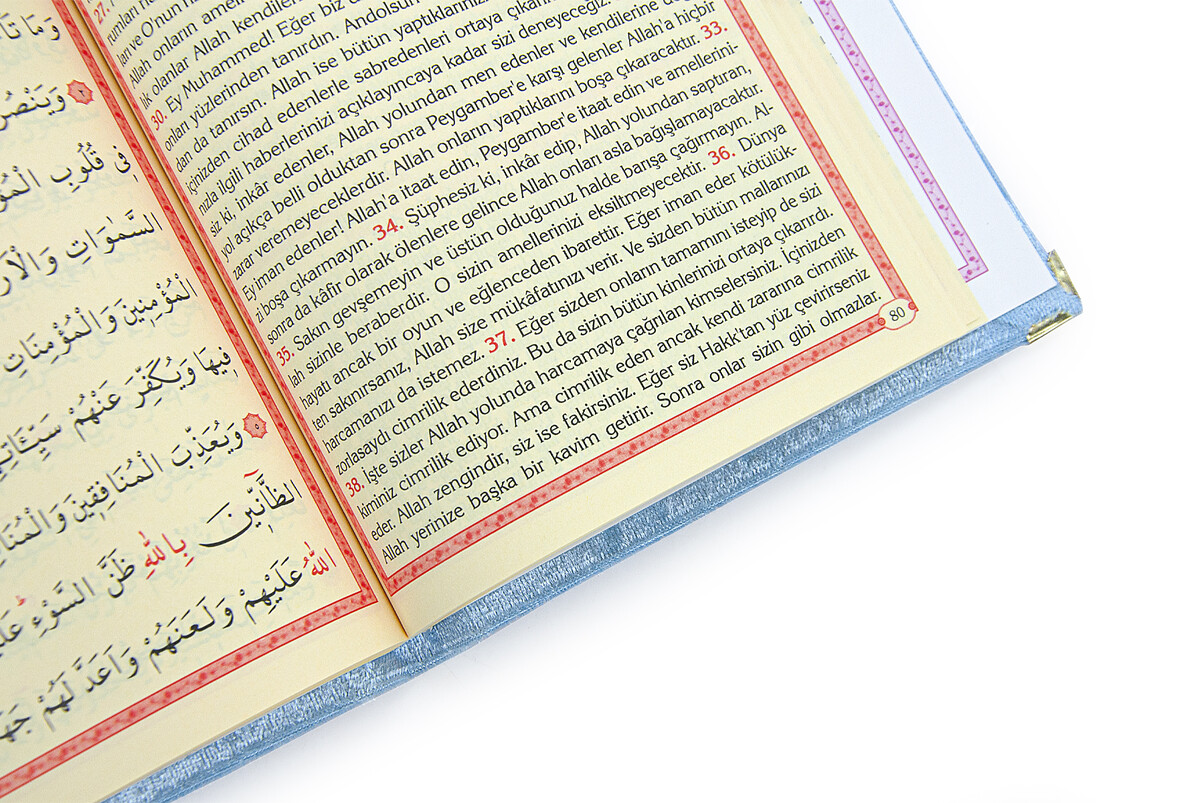 وَمَا تَأَ
وَيَنْصُرَ
فِى قُلُوبِ الْمُؤْ
السَّمٰوَاتِ وَالْاَرْ
الْمُؤْمِنٖينَ وَالْمُؤْمِنَاتِ
فٖيهَا وَيُكَفِّرَ عَنْهُمْ سَيِّـَٔاتِهِ
٥ وَيُعَذِّبَ الْمُنَافِقٖينَ وَالْمُنَا
الظَّٓانّٖينَ بِاللّٰهِ ظَنَّ السَّوْءِ عَلَ
اللّٰهُ عَلَيْهِمْ وَلَعَنَهُمْ وَاَعَدَّ لَهُمْ جَهَ
27.
ları ve O'nun
Allah onların ameli
lık olanlar Allah kendileri
30. Ey Muhammed! Eğer biz d
onları yüzlerinden tanırdın. Andolsun
dan da tanırsın. Allah ise bütün yaptıklarınız
içinizden cihad edenlerle sabredenleri ortaya çıkar
nızla ilgili haberlerinizi açıklayıncaya kadar sizi deneyeceğiz.
siz ki, inkâr edenler, Allah yolundan men edenler ve kendilerine d
yol açıkça belli olduktan sonra Peygamber'e karşı gelenler Allah'a hiçbir
zarar veremeyeceklerdir. Allah onların yaptıklarını boşa çıkaracaktır. 33.
Ey iman edenler! Allah'a itaat edin, Peygamber'e itaat edin ve amellerini-
zi boşa çıkarmayın. 34. Şüphesiz ki, inkâr edip, Allah yolundan saptıran,
sonra da kâfir olarak ölenlere gelince Allah onları asla bağışlamayacaktır.
35. Sakın gevşemeyin ve üstün olduğunuz halde barışa çağırmayın. Al-
lah sizinle beraberdir. O sizin amellerinizi eksiltmeyecektir. 36. Dünya
hayatı ancak bir oyun ve eğlenceden ibarettir. Eğer iman eder kötülük-
ten sakınırsanız, Allah size mükâfatınızı verir. Ve sizden bütün mallarınızı
harcamanızı da istemez. 37. Eğer sizden onların tamamını isteyip de sizi
zorlasaydı cimrilik ederdiniz. Bu da sizin bütün kinlerinizi ortaya çıkarırdı.
38. İşte sizler Allah yolunda harcamaya çağrılan kimselersiniz. İçinizden
kiminiz cimrilik ediyor. Ama cimrilik eden ancak kendi zararına cimrilik
eder. Allah zengindir, siz ise fakirsiniz. Eğer siz Hakk'tan yüz çevirirseniz
Allah yerinize başka bir kavim getirir. Sonra onlar sizin gibi olmazlar.
80